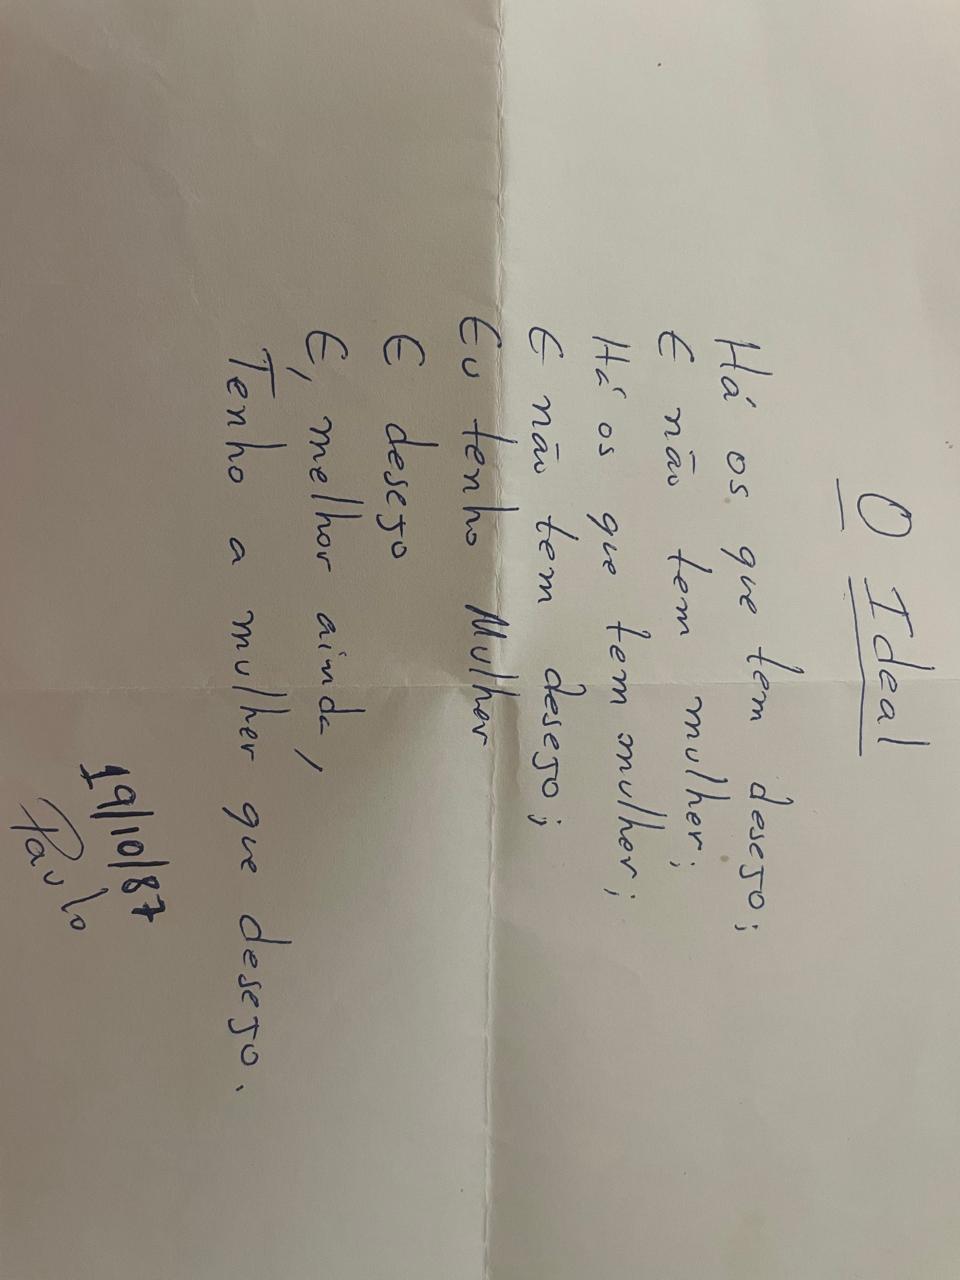 O Ideal
Há os que tem desejo;
E não tem mulher;
Há os que tem mulher;
E não tem desejo;
Eu tenho Mulher
E desejo
E, melhor ainda,
Tenho a mulher que desejo.
19/10/87
Paulo